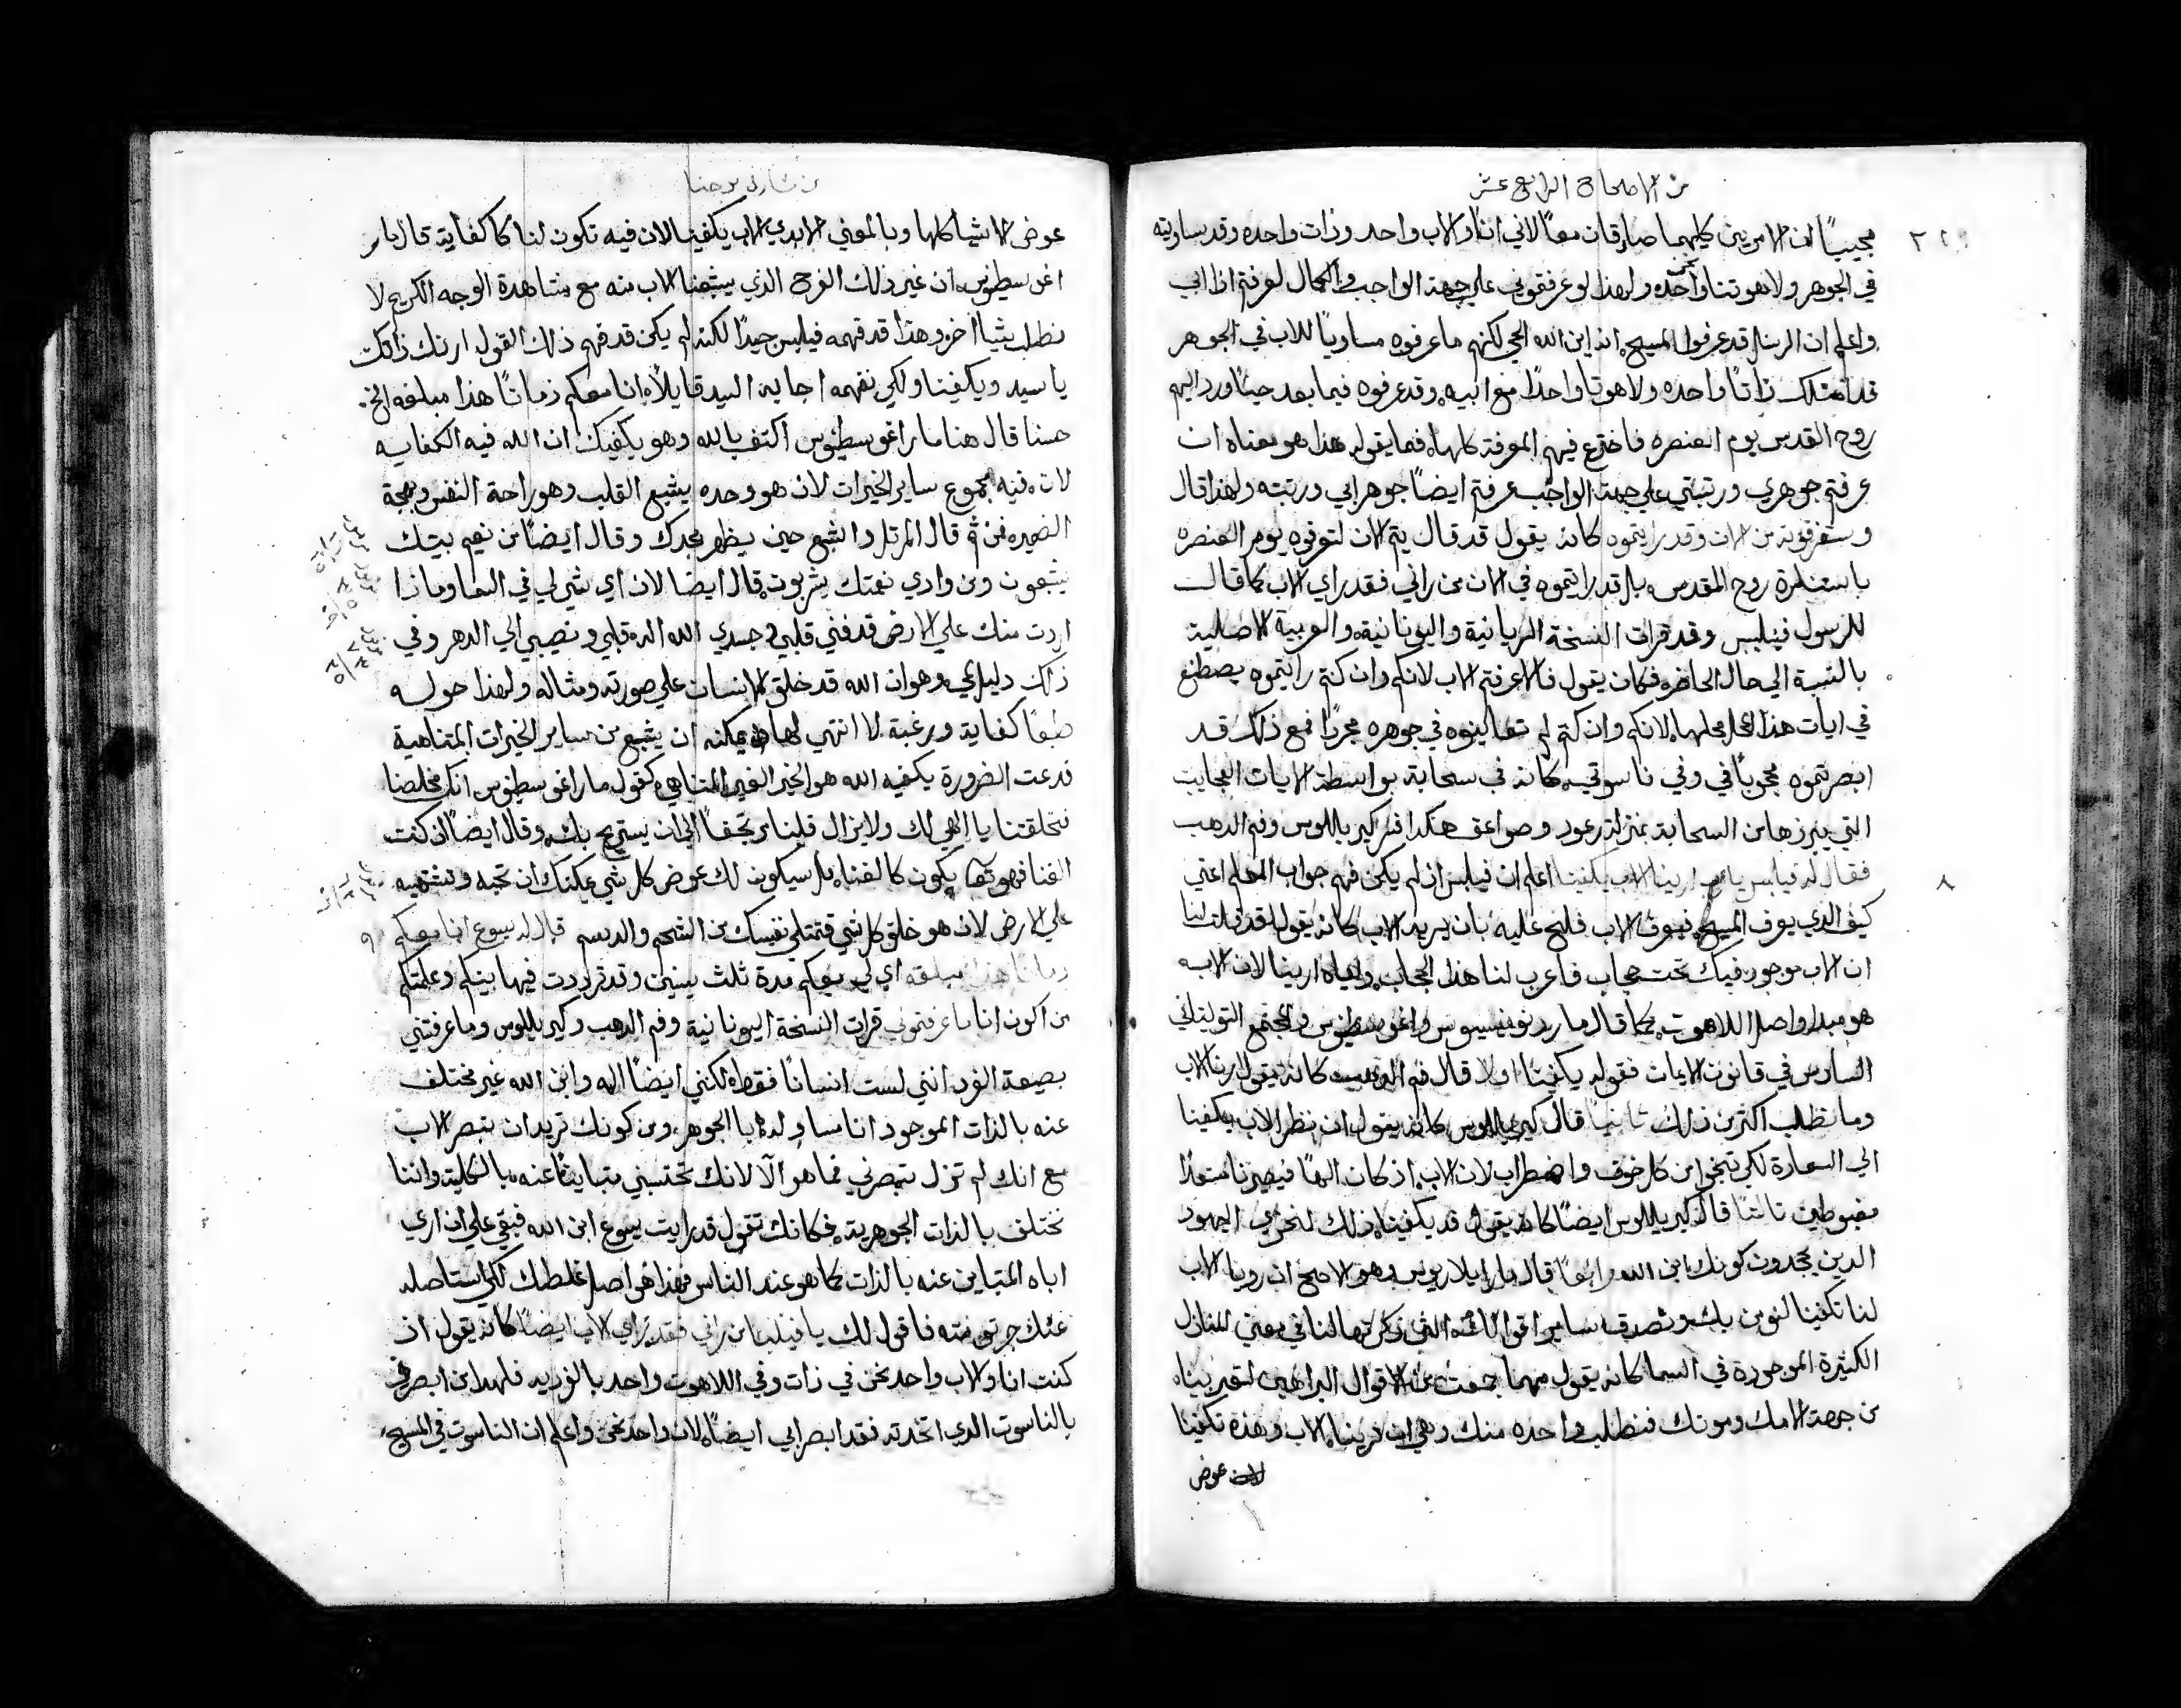 من الاصحاح الرابع عشر
مجيبًا ان الامرين كليهما صادقان معًا لاني انا والاب واحد وذات واحده وقد ساويته
في الجوهر ولاهوتنا واحده ولهذا لو عرفتموني علي جهة الواجب والكمال لعرفتم اذا ابي
واعلم ان الرسل قد عرفوا المسيح انه ابن الله الحي لكنهم ما عرفوه مساويًا للاب في الجوهر
قد امتلك ذاتًا واحده ولاهوتا واحدًا مع ابيه وقد عرفوه فيما بعد حينما ورد اليهم
روح القدس يوم العنصره فاخترع فيهم المعرفة كلها فما يقوله هذا هو معناه ان
عرفتم جوهري ورتبتي علي جهة الواجب عرفتم ايضًا جوهر ابي ورتبته ولهذا قال
وستعرفونه من الان وقد رايتموه كانه يقول قد قال يتم الان لتعرفوه يوم العنصره
باستنارة روح القدس بل قد رايتموه في الان من راني فقد راي الاب كما قالت
للرسول فيلبس وقد قرات النسخة السريانية واليونانية والعربية الاصلية
بالنسبة الي حال الحاضره فكان يقول فالا عرفتم الاب لانكم وان كنتم رايتموه يصطنع
في ايات هذا لانكم وان كنتم لم تعاينوه في جوهره مجردًا فمع ذلك قد
ابصرتموه محجوبًا في وفي ناسوتي كانه في سحابة بواسطة الايات العجايب
التي يبرزها من السحابة بمنزلة رعود وصواعق هكذا فسر كيرياللوس وفم الدهب
٨ فقال له فيلبس يارب ارينا الاب يكفينا اعلم ان فيلبس اذ لم يكن فهم جواب المعلم اعني
كيف الدي يعرف المسيح يعرف الاب فلح عليه بان يريه الاب كانه يقول قد قلت لنا
ان الاب موجود فيك تحت حجاب فاعرب لنا هذا الحجاب واياه ارينا لان الاب
هو مبدا واصل اللاهوت كما قال مار ديونوسيوس واغوسطينوس والمجتمع التوليتاني
السادس في قانون الايمان فقوله يكفينا اولا قال فم الدهب كانه يقول ارينا الاب
وما نطلب اكثر من ذلك ثانيًا قال كيرياللوس كانه يقول ان نظر الاب يكفينا
الي السعادة لكي ننجوا من كل خوف واضطراب لان الاب اذ كان الهًا فيصيرنا سعدًا
مغبوطين ثالثا قال كيرياللوس ايضًا كانه يقول قد يكفينا ذلك لنخزي اليهود
الدين يجحدون كونك ابن الله رابعًا قال مار ايلاريوس وهو الاصح ان روية الاب
لنا تكفينا لنومن بك ونصدق ساير اقوالك التي ذكرتها لنا في معني المنازل
الكثيرة الموجودة في السما كانه يقول مهما جمعت من الاقوال البراهين لتعزيتنا
من جهة الامك وموتك فنطلب واحده منك وهي ان ترينا الاب وهذه تكفينا
عوض
من بشارة يوحنا
عوض الاشيا كلها وبالمعني الابدي الاب يكفينا لان فيه تكون لنا كل كفاية قال مار
اغوسطينوس ان غير ذلك الفرح الذي يشبعنا الاب منه مع مشاهدة الوجه الكريم لا
نطلب شيًا اخر وهذا قد فهمه فيلبس جيدًا لكنه لم يكن قد فهم ذلك القول ارنك ذاتك
يا سيد ويكفينا ولكي نفهمه اجابه السيد قايلاً انا معكم زمانًا هذا مبلغه الخ
حسنا قال هنا مار اغوسطينوس اكتف بالله وهو يكفيك ان الله فيه الكفاية
لان فيه مجموع ساير الخيرات لان هو وحده يشبع القلب وهو راحة النفس وبهجة
الضميره فمن ثم قال المرتل واشبع حين يظهر مجدك وقال ايضًا من نعيم بيتك
يشبعون ومن وادي نعمتك يشربون قال ايضا لان اي شي لي في السما وماذا
اردت منك علي الارض قد فني قلبي وجسدي الله اله قلبي ونصيبي الي الدهر وفي
ذلك دليل وهو ان الله قد خلق الانسان علي صورته ومثاله ولهذا حوله
طبعًا كفاية ورغبة لا انتهي لها يمكنه ان يشبع من ساير الخيرات المتناهية
فدعت الضرورة يكفيه الله هو الخير الغير المتناهي كقول مار اغوسطينوس انك مخلصنا
خلقتنا يا الهي لك ولا يزال قلبنا مرتجفًا الي ان يستريح بك وقال ايضًا ان كنت
الفنا فهو يكون كالفناه بل سيكون لك عوض كل شي يمكنك ان تحبه وتشتهيه
علي الارض لانه هو خلق كل شي فتمتلي نفسك من الشحم والدسم قال له يسوع انا معكم ٩
زمانًا هذا مبلغه اي لي معكم مدة ثلث سنين وقد ترددت فيها بينكم وعلمتكم
من اكون انا ما عرفتموني قرات النسخة اليونانية وفم الدهب وكيرياللوس وما عرفتني
بصيغة الفرد انني لست انسانًا فقط لكنني ايضًا اله وابن الله غير مختلف
عنه بالذات الموجود انا مساو له بالجوهر ومن كونك تريد ان تبصر الاب
مع انك لم تزل تبصرني فما هو الا لانك تحتسبني متباينًا عنه بالكلية واننا
نختلف بالذات الجوهرية فكانك تقول قد رايت يسوع ابن الله فبقي علي ان اري
اباه المتباين عنه بالذات كما هو عند الناس فهذا هو اصل غلطك لكي استاصله
عنك فاقول لك يا فيلبس من راني فقد راي الاب ايضًا كانه يقول اذ
كنت انا والاب واحد نحن في ذات وفي اللاهوت واحد فلهذا من ابصرني
بالناسوت الدي اتخدته فقد ابصر ابي ايضًا لان واحد نحن واعلم ان الناسوت في المسيح